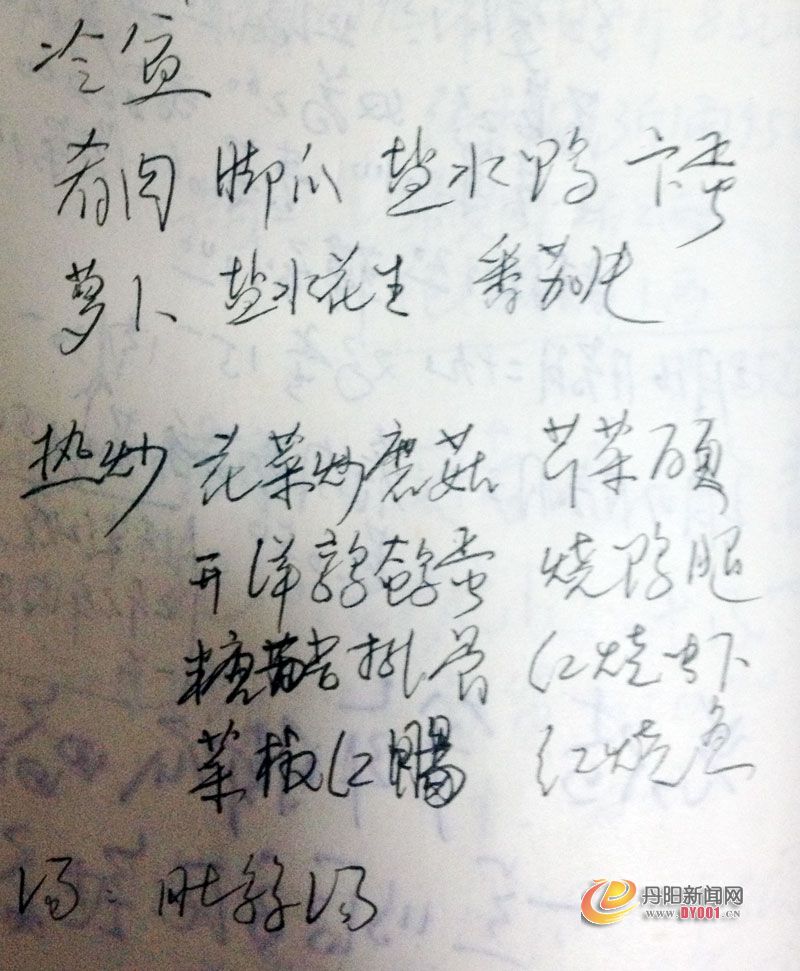 冷盆
肴肉 脚爪 盐水鸭 卞蛋
萝卜 盐水花生 番茄
热炒 花菜炒蘑菇 芹菜
开洋鹌鹑蛋 烧鸭腿
糖醋排骨 红烧虾
菜椒红肠 红烧鱼
汤：肚丝汤
丹阳新闻网
WWW.DY001.CN